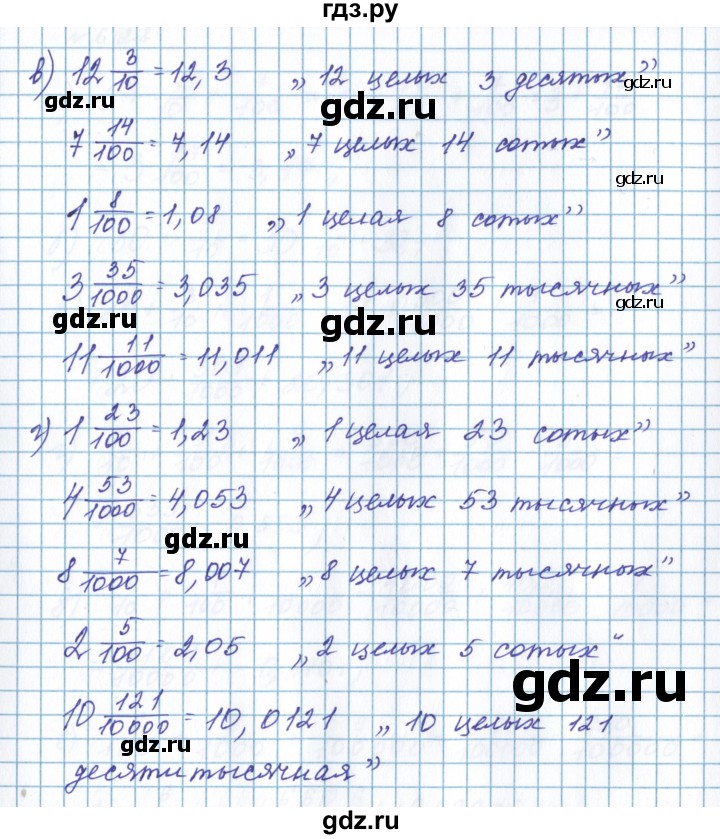 гдз.ру
в) 12 3/10 = 12,3 „12 целых 3 десятых”
gdz.ru gdz.ru
gdz.ru
7 14/100 = 7,14 „7 целых 14 сотых”
gdz.ru
1 8/100 = 1,08 „1 целая 8 сотых”
3 35/1000 = 3,035 „3 целых 35 тысячных”
gdz.ru
gdz.ru gdz.ru
11 11/1000 = 11,011 „11 целых 11 тысячных”
г) 1 23/100 = 1,23 „1 целая 23 сотых”
4 53/1000 = 4,053 „4 целых 53 тысячных”
gdz.ru
8 7/1000 = 8,007 „8 целых 7 тысячных”
2 5/100 = 2,05 „2 целых 5 сотых“
gdz.ru
10 121/10000 = 10,0121 „10 целых 121
gdz.ru
десятитысячная”
gdz.ru